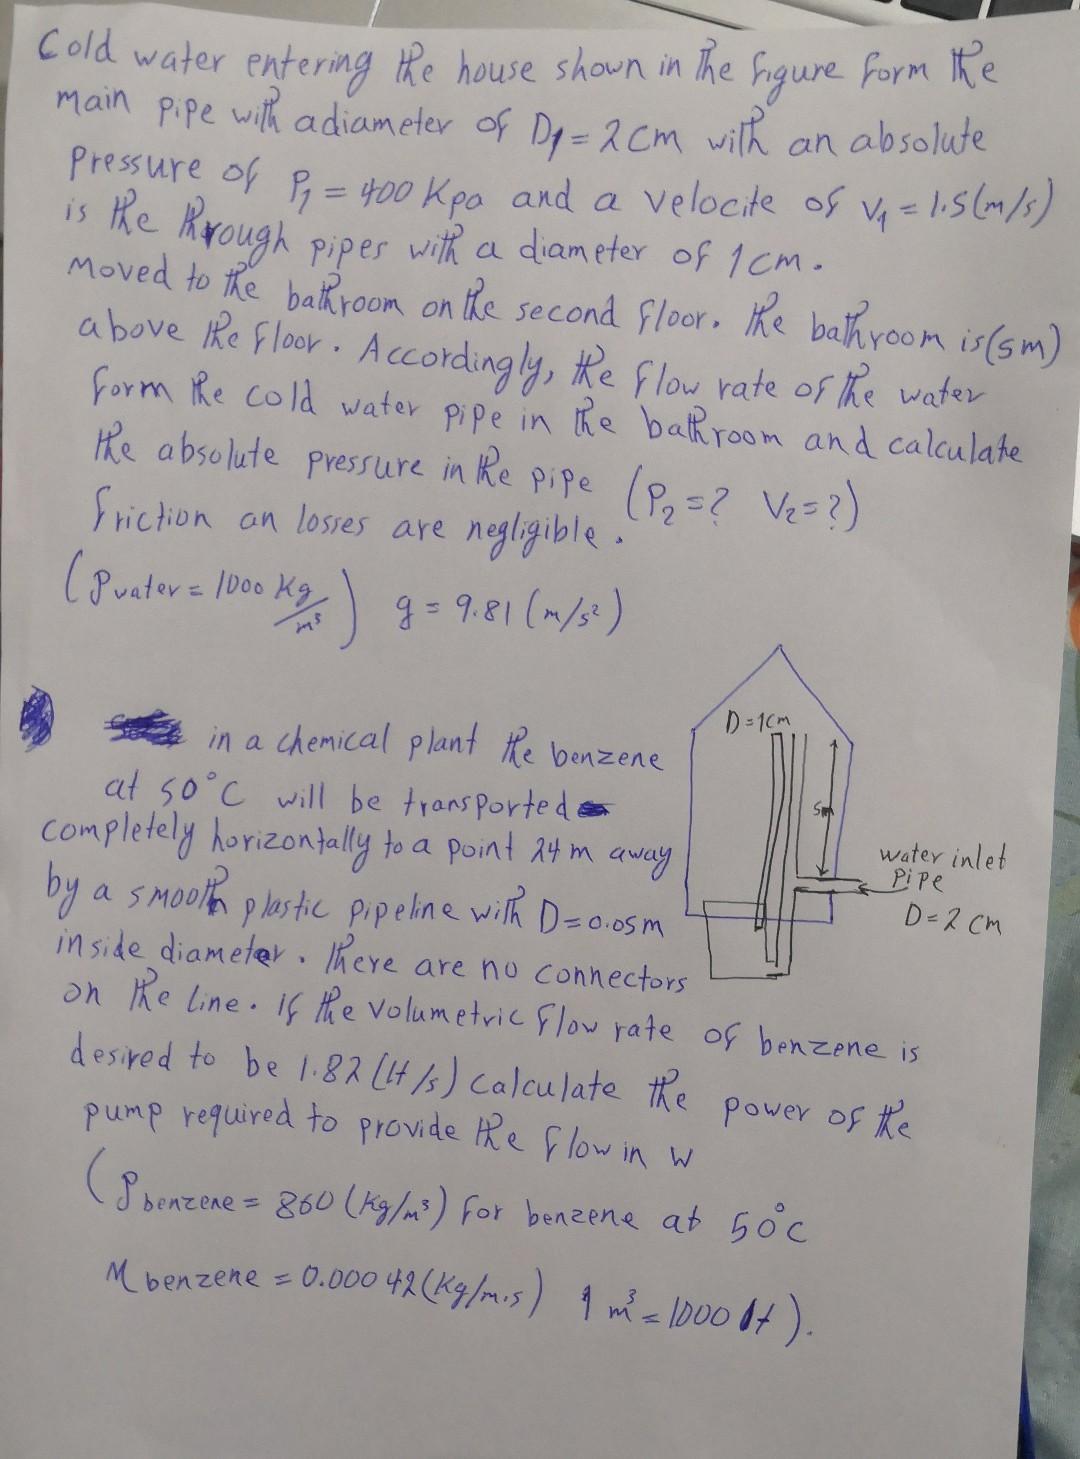 Cold water entering the house shown in the figure form the
main pipe with a diameter of D1 = 2 cm with an absolute
pressure of P1 = 400 Kpa and a velocite of V1 = 1.5 (m/s)
is the through pipes with a diameter of 1 cm.
Moved to the bathroom on the second floor. the bathroom is (5m)
above the floor. Accordingly, the flow rate of the water
form the cold water pipe in the bathroom and calculate
the absolute pressure in the pipe (P2=? V2=?)
friction an losses are negligible.
(ρwater = 1000 Kg/m³) g = 9.81 (m/s²)
in a chemical plant the benzene
at 50°C will be transported
completely horizontally to a point 24 m away
by a smooth plastic pipeline with D=0.05m
inside diameter. there are no connectors
on the line. if the volumetric flow rate of benzene is
desired to be 1.82 (lt/s) calculate the power of the
pump required to provide the flow in w
(ρbenzene = 860 (kg/m³) for benzene at 50°C
M benzene = 0.00042 (kg/m.s) 1 m³ = 1000 lt).
D=1cm
5m
water inlet
pipe
D=2 cm